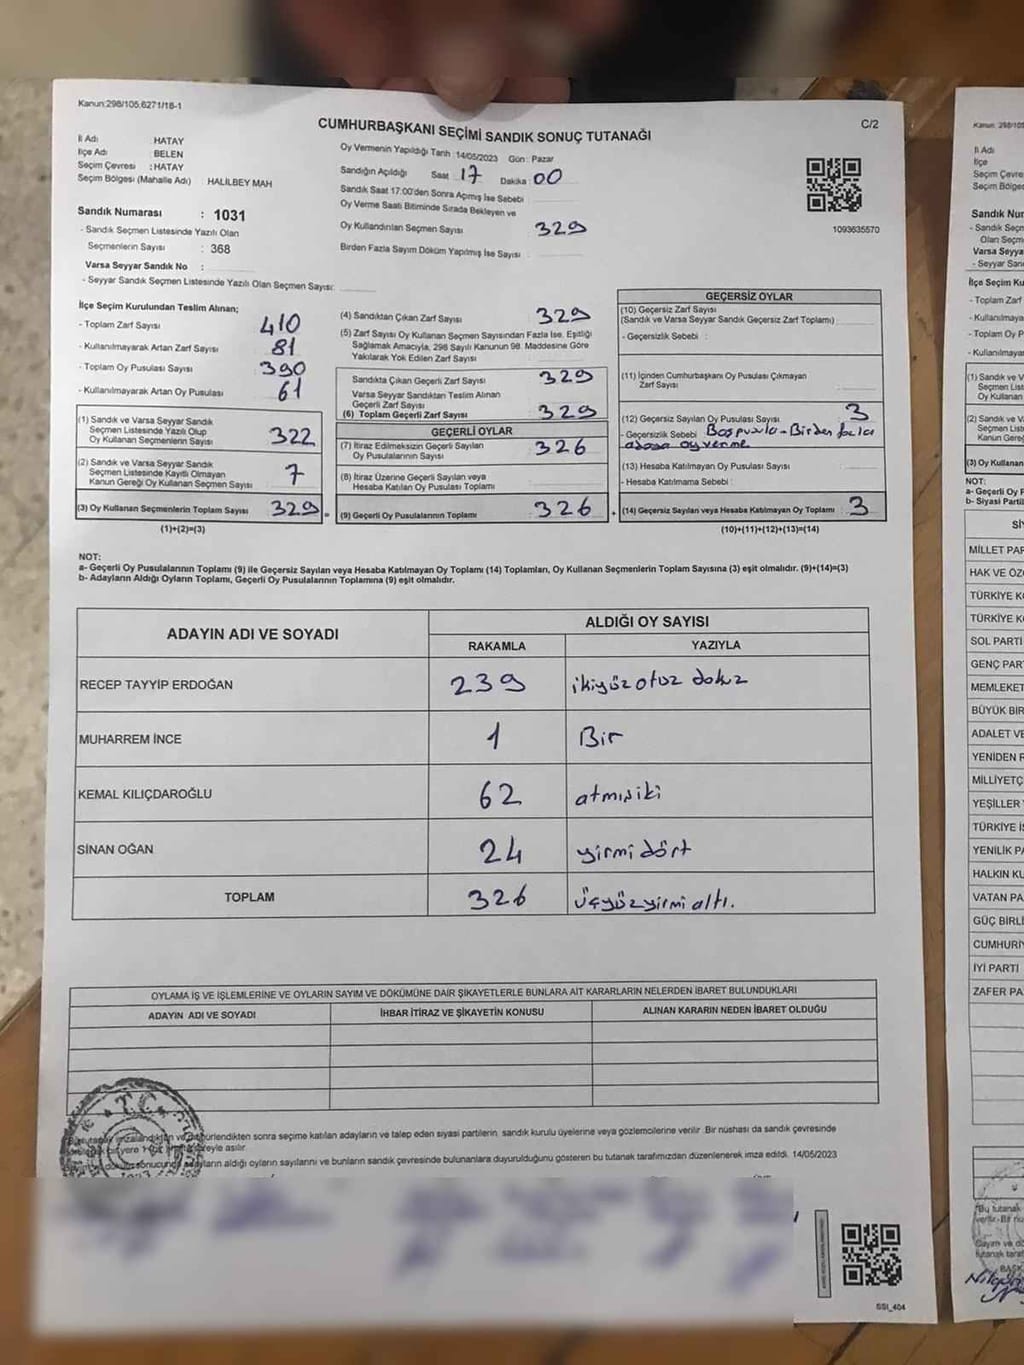 Kanun:298/105,6271/18-1
CUMHURBAŞKANI SEÇİMİ SANDIK SONUÇ TUTANAĞI
C/2
İl Adı : HATAY
İlçe Adı : BELEN
Seçim Çevresi : HATAY
Seçim Bölgesi (Mahalle Adı) : HALİLBEY MAH
Sandık Numarası : 1031
- Sandık Seçmen Listesinde Yazılı Olan
Seçmenlerin Sayısı : 368
Varsa Seyyar Sandık No :
- Seyyar Sandık Seçmen Listesinde Yazılı Olan Seçmen Sayısı:
Oy Vermenin Yapıldığı Tarih :14/05/2023 Gün : Pazar
Sandığın Açıldığı Saat : 17 Dakika : 00
Sandık Saat 17:00'den Sonra Açmış İse Sebebi
Oy Verme Saati Bitiminde Sırada Bekleyen ve
Oy Kullandırılan Seçmen Sayısı 329
Birden Fazla Sayım Döküm Yapılmış İse Sayısı
1093635570
İlçe Seçim Kurulundan Teslim Alınan;
- Toplam Zarf Sayısı 410
- Kullanılmayarak Artan Zarf Sayısı 81
- Toplam Oy Pusulası Sayısı 390
- Kullanılmayarak Artan Oy Pusulası 61
(1) Sandık ve Varsa Seyyar Sandık
Seçmen Listesinde Yazılı Olup
Oy Kullanan Seçmenlerin Sayısı 322
(2) Sandık ve Varsa Seyyar Sandık
Seçmen Listesinde Kayıtlı Olmayan
Kanun Gereği Oy Kullanan Seçmen Sayısı 7
(3) Oy Kullanan Seçmenlerin Toplam Sayısı 329
(1)+(2)=(3)
(4) Sandıktan Çıkan Zarf Sayısı 329
(5) Zarf Sayısı Oy Kullanan Seçmen Sayısından Fazla İse, Eşitliği
Sağlamak Amacıyla, 298 Sayılı Kanunun 98. Maddesine Göre
Yakılarak Yok Edilen Zarf Sayısı
Sandıkta Çıkan Geçerli Zarf Sayısı 329
Varsa Seyyar Sandıktan Teslim Alınan
Geçerli Zarf Sayısı
(6) Toplam Geçerli Zarf Sayısı 329
GEÇERLİ OYLAR
(7) İtiraz Edilmeksizin Geçerli Sayılan
Oy Pusulalarının Sayısı 326
(8) İtiraz Üzerine Geçerli Sayılan veya
Hesaba Katılan Oy Pusulası Toplamı
(9) Geçerli Oy Pusulalarının Toplamı 326
GEÇERSİZ OYLAR
(10) Geçersiz Zarf Sayısı
(Sandık ve Varsa Seyyar Sandık Geçersiz Zarf Toplamı)
- Geçersizlik Sebebi :
(11) İçinden Cumhurbaşkanı Oy Pusulası Çıkmayan
Zarf Sayısı
(12) Geçersiz Sayılan Oy Pusulası Sayısı 3
- Geçersizlik Sebebi Boş pusula - Birden fazla
adaya oy verme
(13) Hesaba Katılmayan Oy Pusulası Sayısı
- Hesaba Katılmama Sebebi :
(14) Geçersiz Sayılan veya Hesaba Katılmayan Oy Toplamı 3
(10)+(11)+(12)+(13)=(14)
NOT:
a- Geçerli Oy Pusulalarının Toplamı (9) ile Geçersiz Sayılan veya Hesaba Katılmayan Oy Toplamı (14) Toplamları, Oy Kullanan Seçmenlerin Toplam Sayısına (3) eşit olmalıdır. (9)+(14)=(3)
b- Adayların Aldığı Oyların Toplamı, Geçerli Oy Pusulalarının Toplamına (9) eşit olmalıdır.
ADAYIN ADI VE SOYADI
ALDIĞI OY SAYISI
RAKAMLA YAZIYLA
RECEP TAYYİP ERDOĞAN 239 ikiyüz otuz dokuz
MUHARREM İNCE 1 Bir
KEMAL KILIÇDAROĞLU 62 atmış iki
SİNAN OĞAN 24 yirmi dört
TOPLAM 326 üçyüz yirmi altı.
OYLAMA İŞ VE İŞLEMLERİNE VE OYLARIN SAYIM VE DÖKÜMÜNE DAİR ŞİKAYETLERLE BUNLARA AİT KARARLARIN NELERDEN İBARET BULUNDUKLARI
ADAYIN ADI VE SOYADI İHBAR İTİRAZ VE ŞİKAYETİN KONUSU ALINAN KARARIN NEDEN İBARET OLDUĞU
T.C.
sonra seçime katılan adayların ve talep eden siyasi partilerin, sandık kurulu üyelerine veya gözlemcilerine verilir. Bir nüshası da sandık çevresinde
asılır.
aldığı oyların sayılarını ve bunların sandık çevresinde bulunanlara duyurulduğunu gösteren bu tutanak tarafımızdan düzenlenerek imza edildi. 14/05/2023
SSI_404
Kanun: 298/105
İl Adı
İlçe
Seçim Çevre
Seçim Bölge
Sandık Nu
- Sandık Seçm
Olan Seçm
Varsa Seyya
- Seyyar San
İlçe Seçim Ku
- Toplam Zarf
- Kullanılmaya
- Toplam Oy P
- Kullanılmaya
(1) Sandık ve Va
Seçmen Liste
Oy Kullanan
(2) Sandık ve Va
Seçmen Liste
Kanun Gere
(3) Oy Kullanan
NOT:
a- Geçerli Oy P
b- Siyasi Partil
SİY
MİLLET PAR
HAK VE ÖZ
TÜRKİYE KO
TÜRKİYE KO
SOL PARTİ
GENÇ PAR
MEMLEKET
BÜYÜK BİR
ADALET VE
YENİDEN R
MİLLİYETÇ
YEŞİLLER
TÜRKİYE İŞ
YENİLİK PA
HALKIN KU
VATAN PA
GÜÇ BİRLİ
CUMHURİY
İYİ PARTİ
ZAFER PA